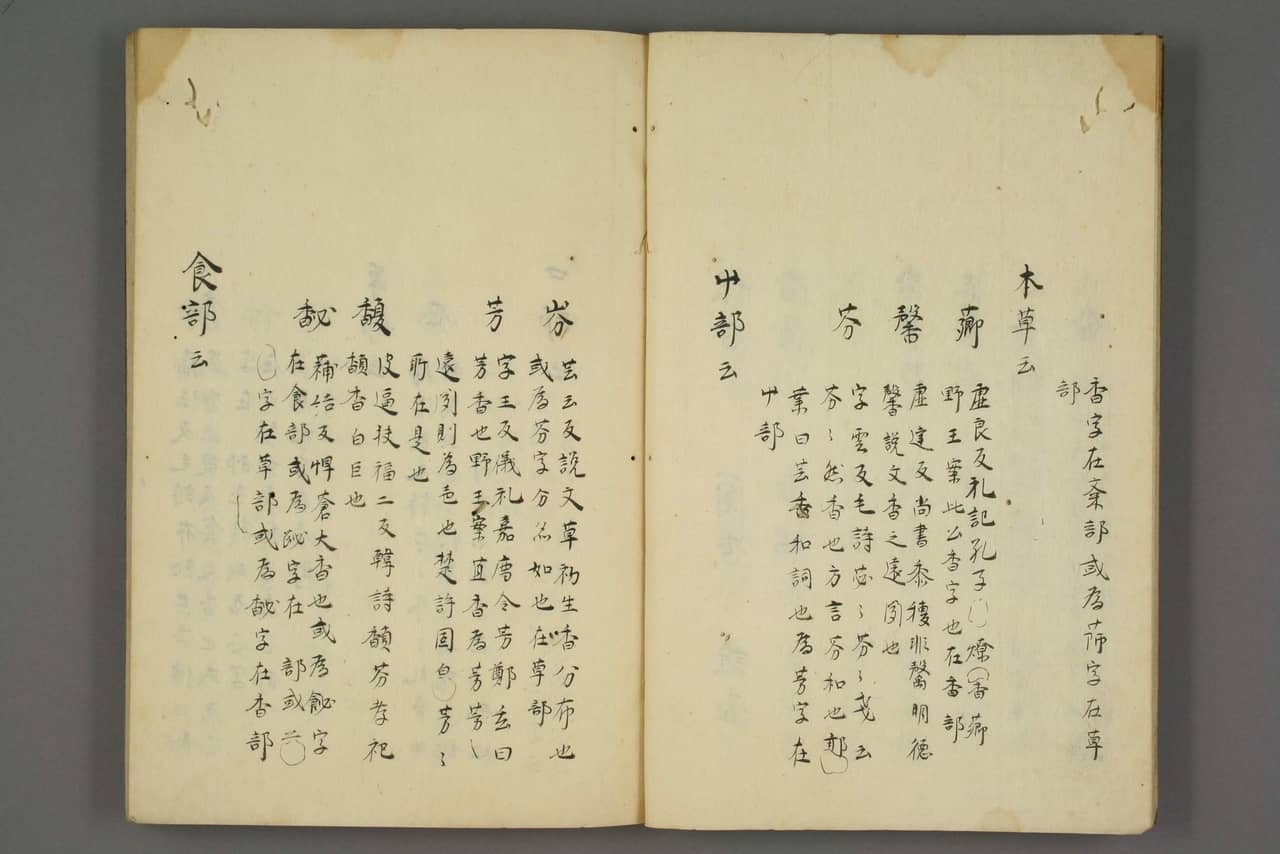 香字在黍部或為芗字在草
部
本草云
薌
虚良反礼記孔子燎香薌
野王案此亦香字也在香部
馨
虚迋反尚書黍稷非馨明德
馨說文香之遠聞也
芬
字雲反毛詩苾〻芬〻戔云
芬〻然香也方言芬和也郭
業曰芸香和詞也為芳字在
屮部
屮部云
岎
芸云反說文草初生香分布也
或為芬字分名如也在草部
芳
字王反儀礼嘉薦令芳鄭玄曰
芳香也野王案直香為芳芳
遠聞則為芭也楚詞固皀芳〻
所在是也
馥
皮逼扶福二反韓詩馥芬孝祀
馥香白巨也
馝
蒱结反悍蒼大香也或為飶字
在食部或為䣥字在 部或
字在草部或為馝字在香部
食部云